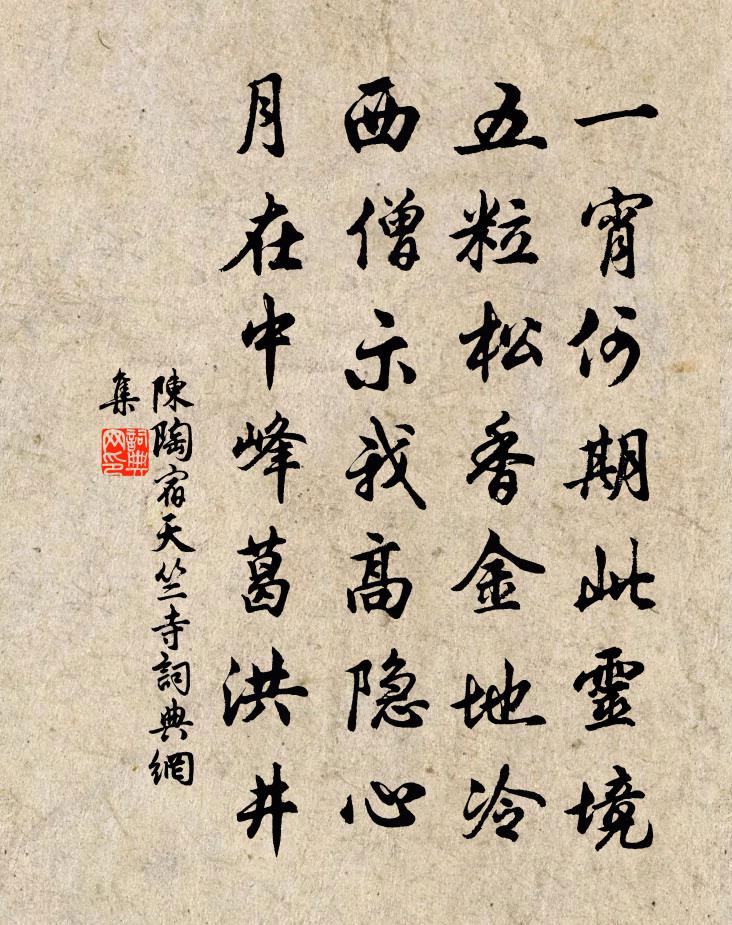 一宵何期此靈境
五粒松香金地冷
西僧示我高隐心
月在中峰葛洪井
陳陶宿天竺寺詞典網
集
詞典
网印